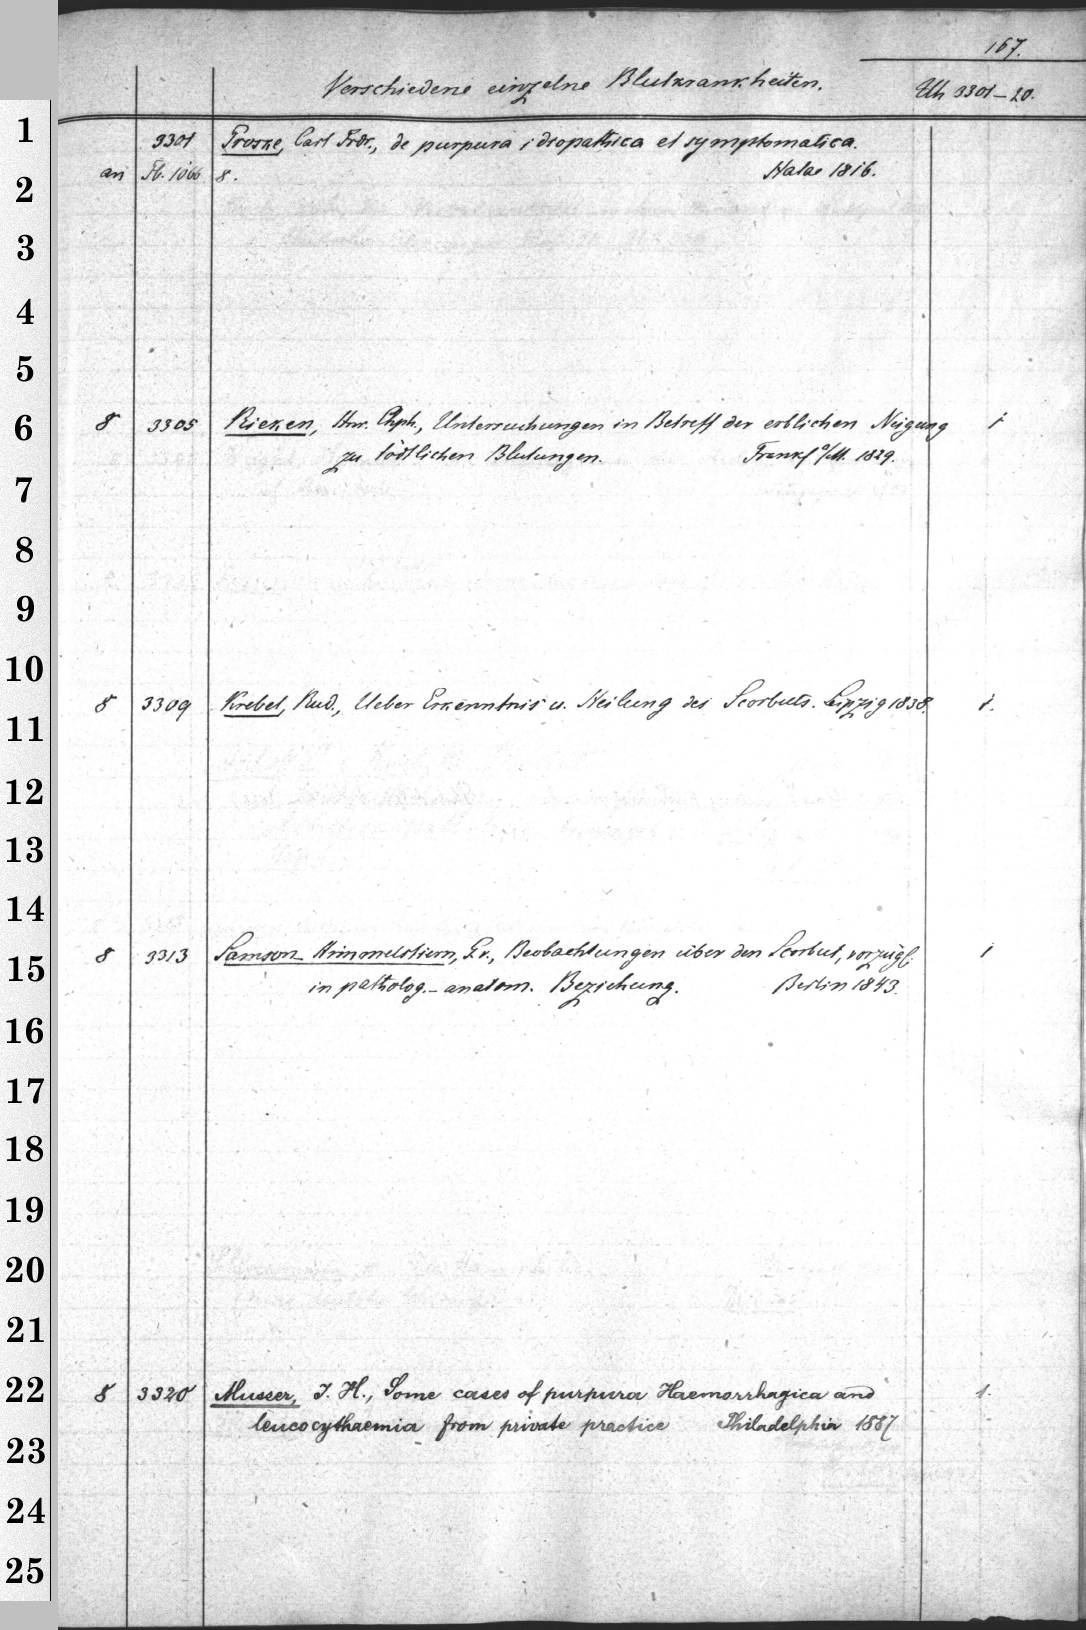 167.
Verschiedene einzelne Blutkrankheiten. Uh 3301-20.
1 3301 Proske, Carl Frdr., de purpura idiopathica et symptomatica.
2 an Fb. 1066 8. Halae 1816.
3
4
5
6 8 3305 Rieken, Hnr. Chph., Untersuchungen in Betreff der erblichen Neigung 1
zu tödtlichen Blutungen. Frankf a/M. 1829.
7
8
9
10
8 3309 Krebel, Rud., Ueber Erkenntnis u. Heilung des Scorbuts. Leipzig 1838. 1.
11
12
13
14
15 8 3313 Samson-Himmelstiern, Gv., Beobachtungen über den Scorbut, vorzügl. 1
in patholog.-anatom. Beziehung. Berlin 1843.
16
17
18
19
20
21
22 8 3320 Musser, J. H., Some cases of purpura Haemorrhagica and 1.
leucocythaemia from private practice Philadelphia 1887
23
24
25